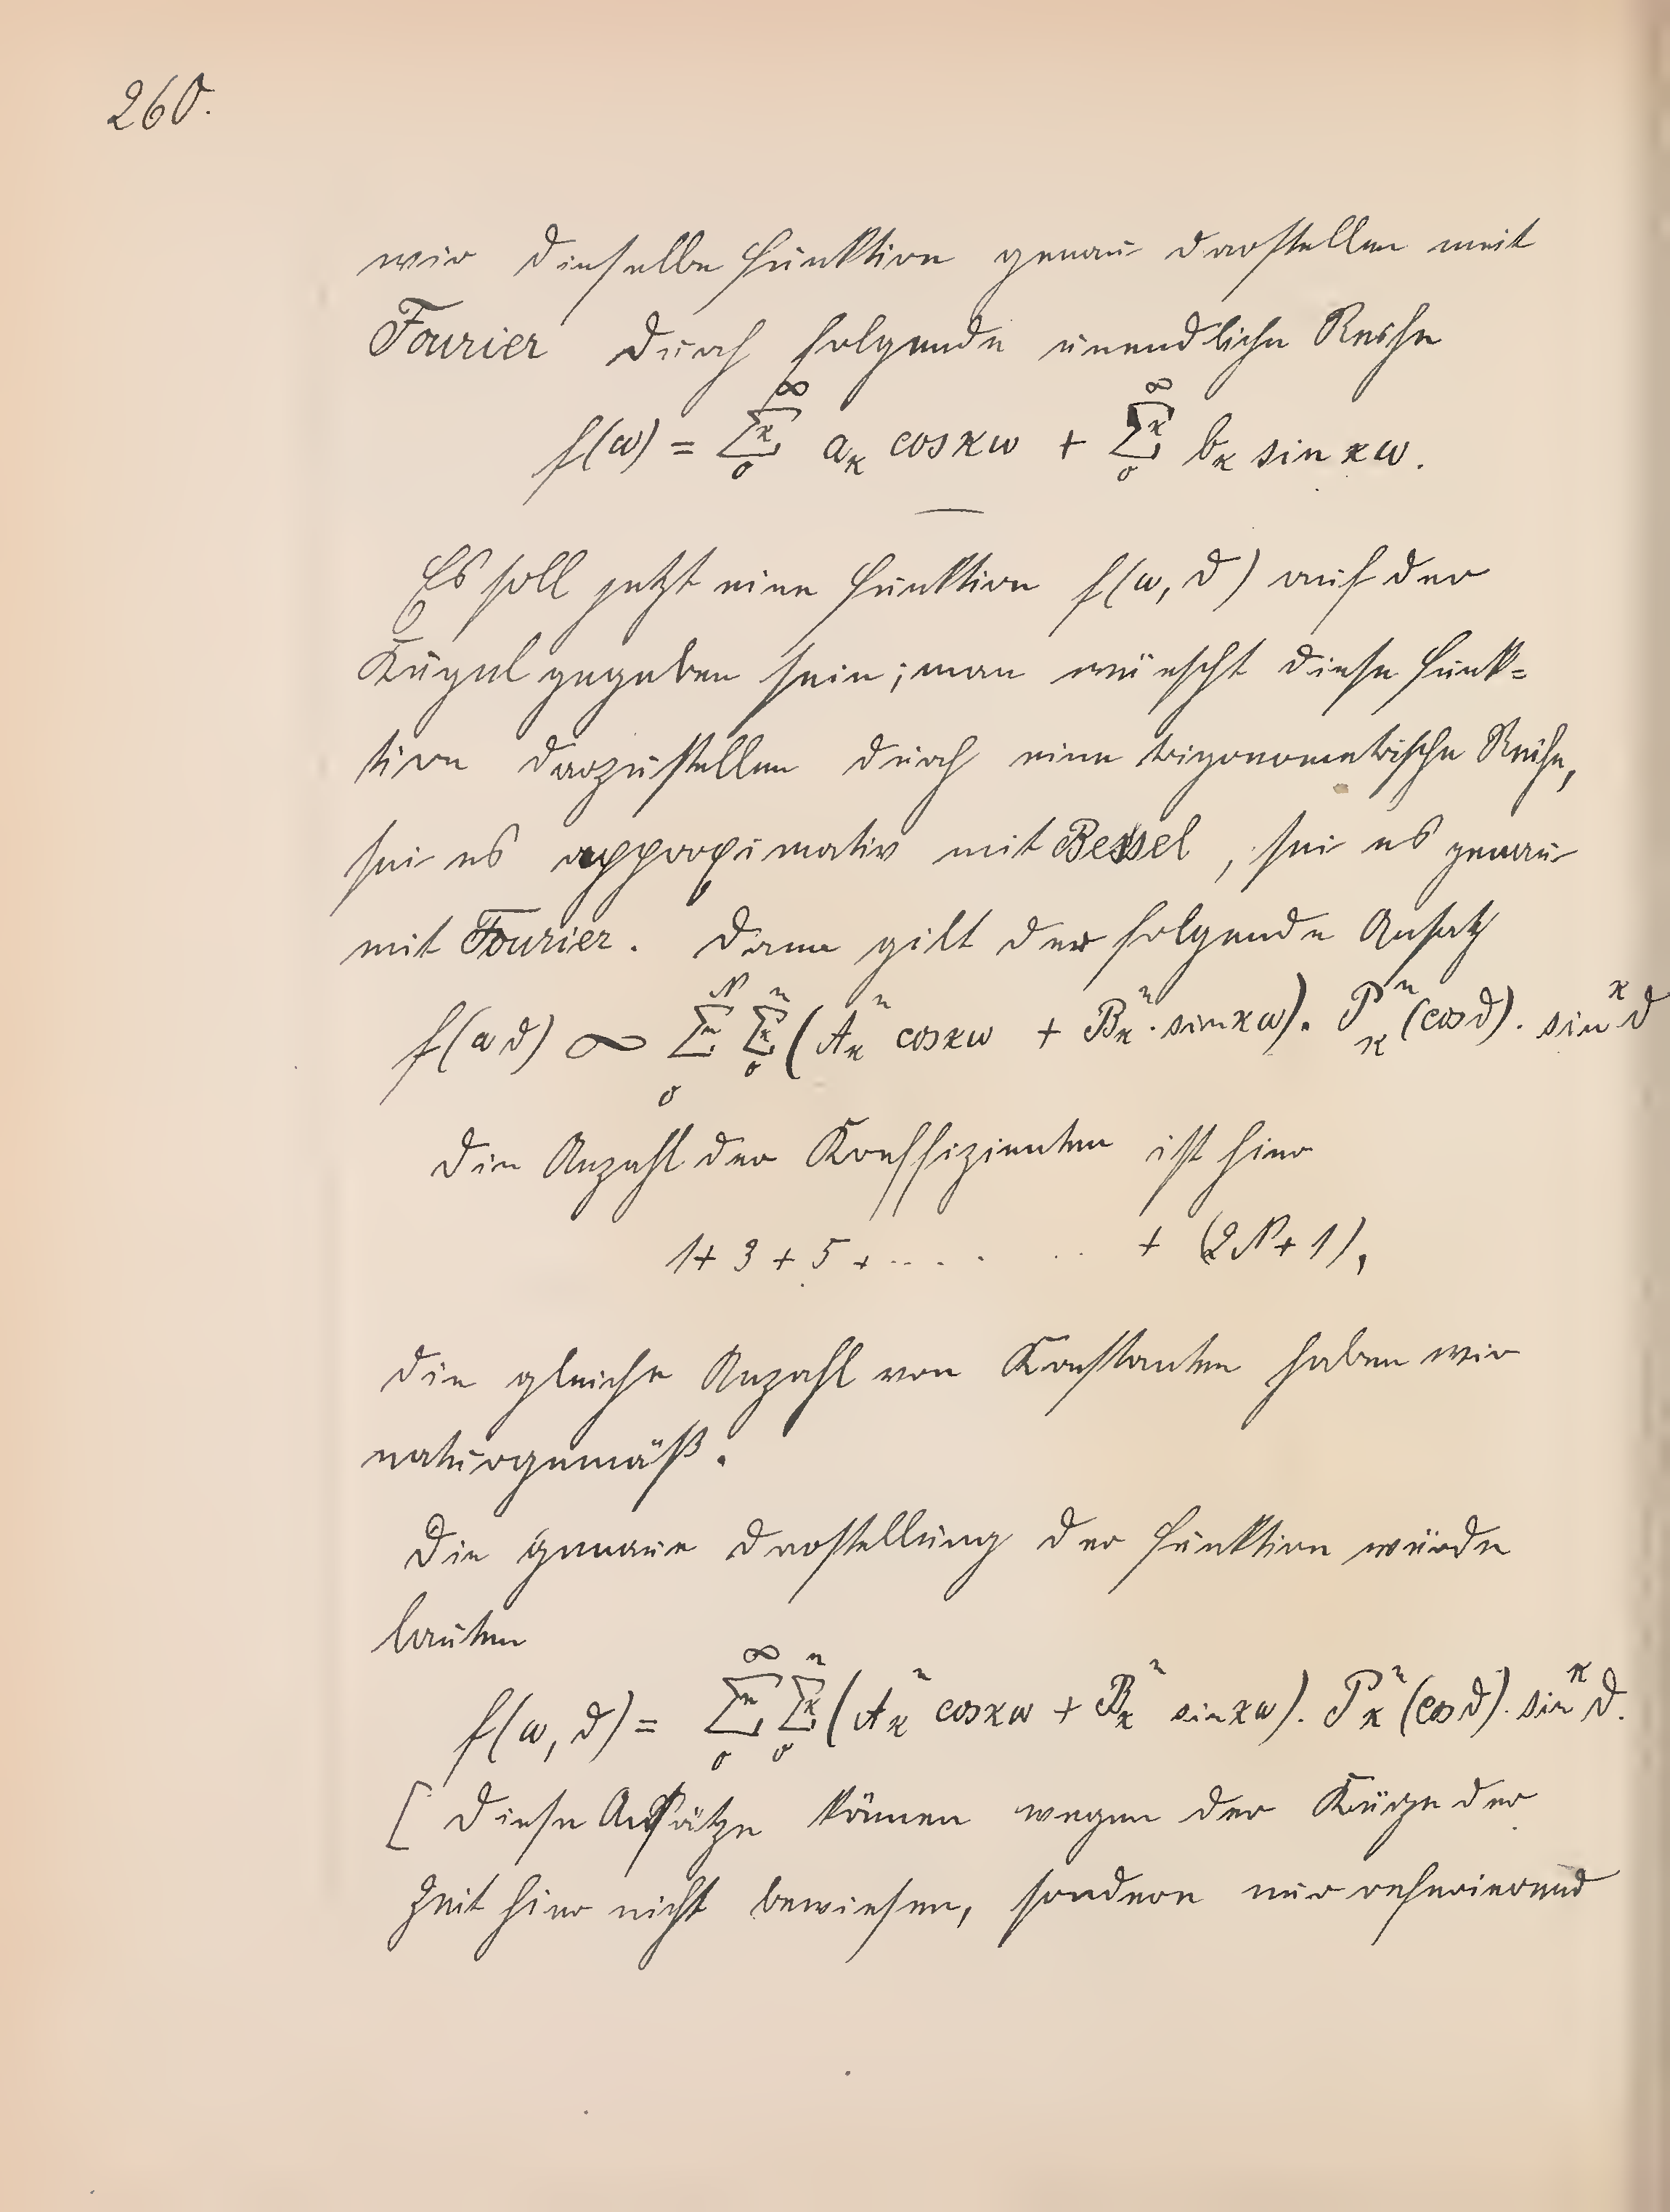 260.
wir dieselbe Funktion genau darstellen mit
Fourier durch folgende unendliche Reihe
f(ω) = Σ^∞_0 κ a_κ cos κω + Σ^∞_0 κ b_κ sin κω.
Es soll jetzt eine Funktion f(ω, ϑ) auf der
Kugel gegeben sein; man wünscht diese Funk=
tion darzustellen durch eine trigonometrische Reihe,
sei es approximativ mit Bessel, sei es genau
mit Fourier. Dann gilt der folgende Ansatz
f(ω ϑ) ∞ Σ^N_0 n Σ^n_0 κ (A^n_κ cos κω + B^n_κ · sin κω). P^n_κ (cos ϑ) · sin^κ ϑ
Die Anzahl der Koeffizienten ist hier
1 + 3 + 5 + ..... + (2N + 1),
die gleiche Anzahl von Konstanten haben wir
naturgemäß.
Die genaue Darstellung der Funktion würde
lauten
f(ω, ϑ) = Σ^∞_0 n Σ^n_0 κ (A^n_κ cos κω + B^n_κ sin κω). P^n_κ (cos ϑ) · sin^κ ϑ.
[ Diese Ansätze können wegen der Kürze der
Zeit hier nicht bewiesen, sondern nur referierend